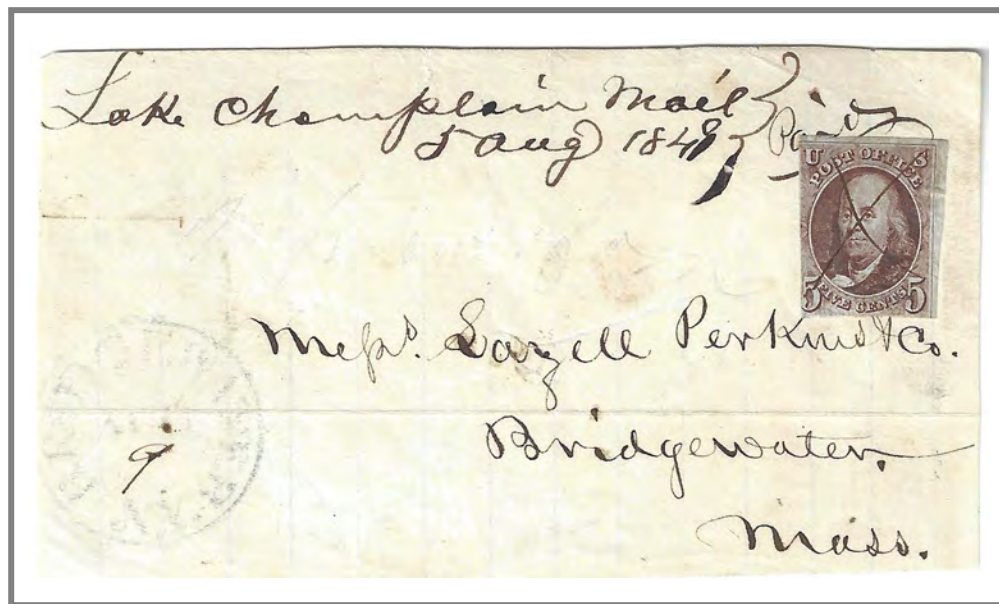 Lake Champlain Mail
5 Aug 1849 Paid
U S
POST OFFICE
FIVE CENTS
5 5
Messrs. Lazell Perkins & Co.
Bridgewater.
9
Mass.